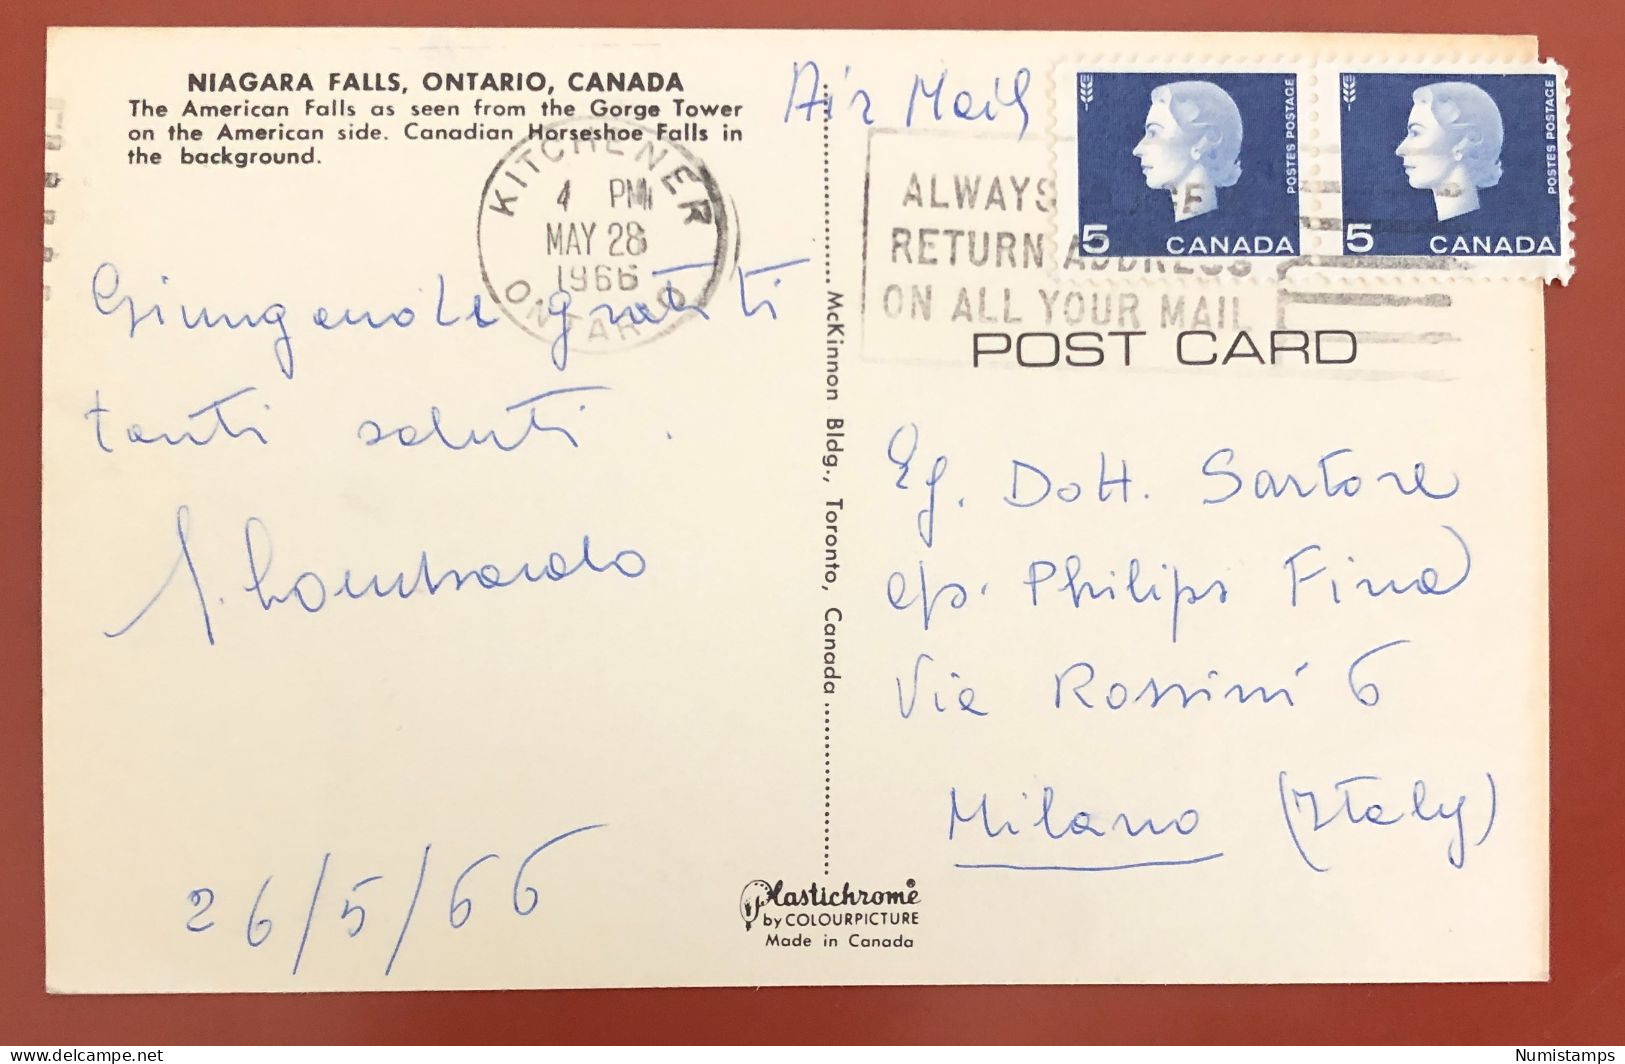 NIAGARA FALLS, ONTARIO, CANADA
The American Falls as seen from the Gorge Tower
on the American side. Canadian Horseshoe Falls in
the background.
Air Mail
KITCHENER
4 PM
MAY 28
1966
ONTARIO
ALWAYS
RETURN ADDRESS
ON ALL YOUR MAIL
POSTES POSTAGE
5 CANADA
POSTES POSTAGE
5 CANADA
POST CARD
Giungano Le graditi
tanti saluti.
Lombardo
26/5/66
McKinnon Bldg., Toronto, Canada
Plastichrome®
by COLOURPICTURE
Made in Canada
Eg. Dott. Sartore
c/o. Philips Fina
Via Rossini 6
Milano (Italy)
Numistamps
delcampe.net